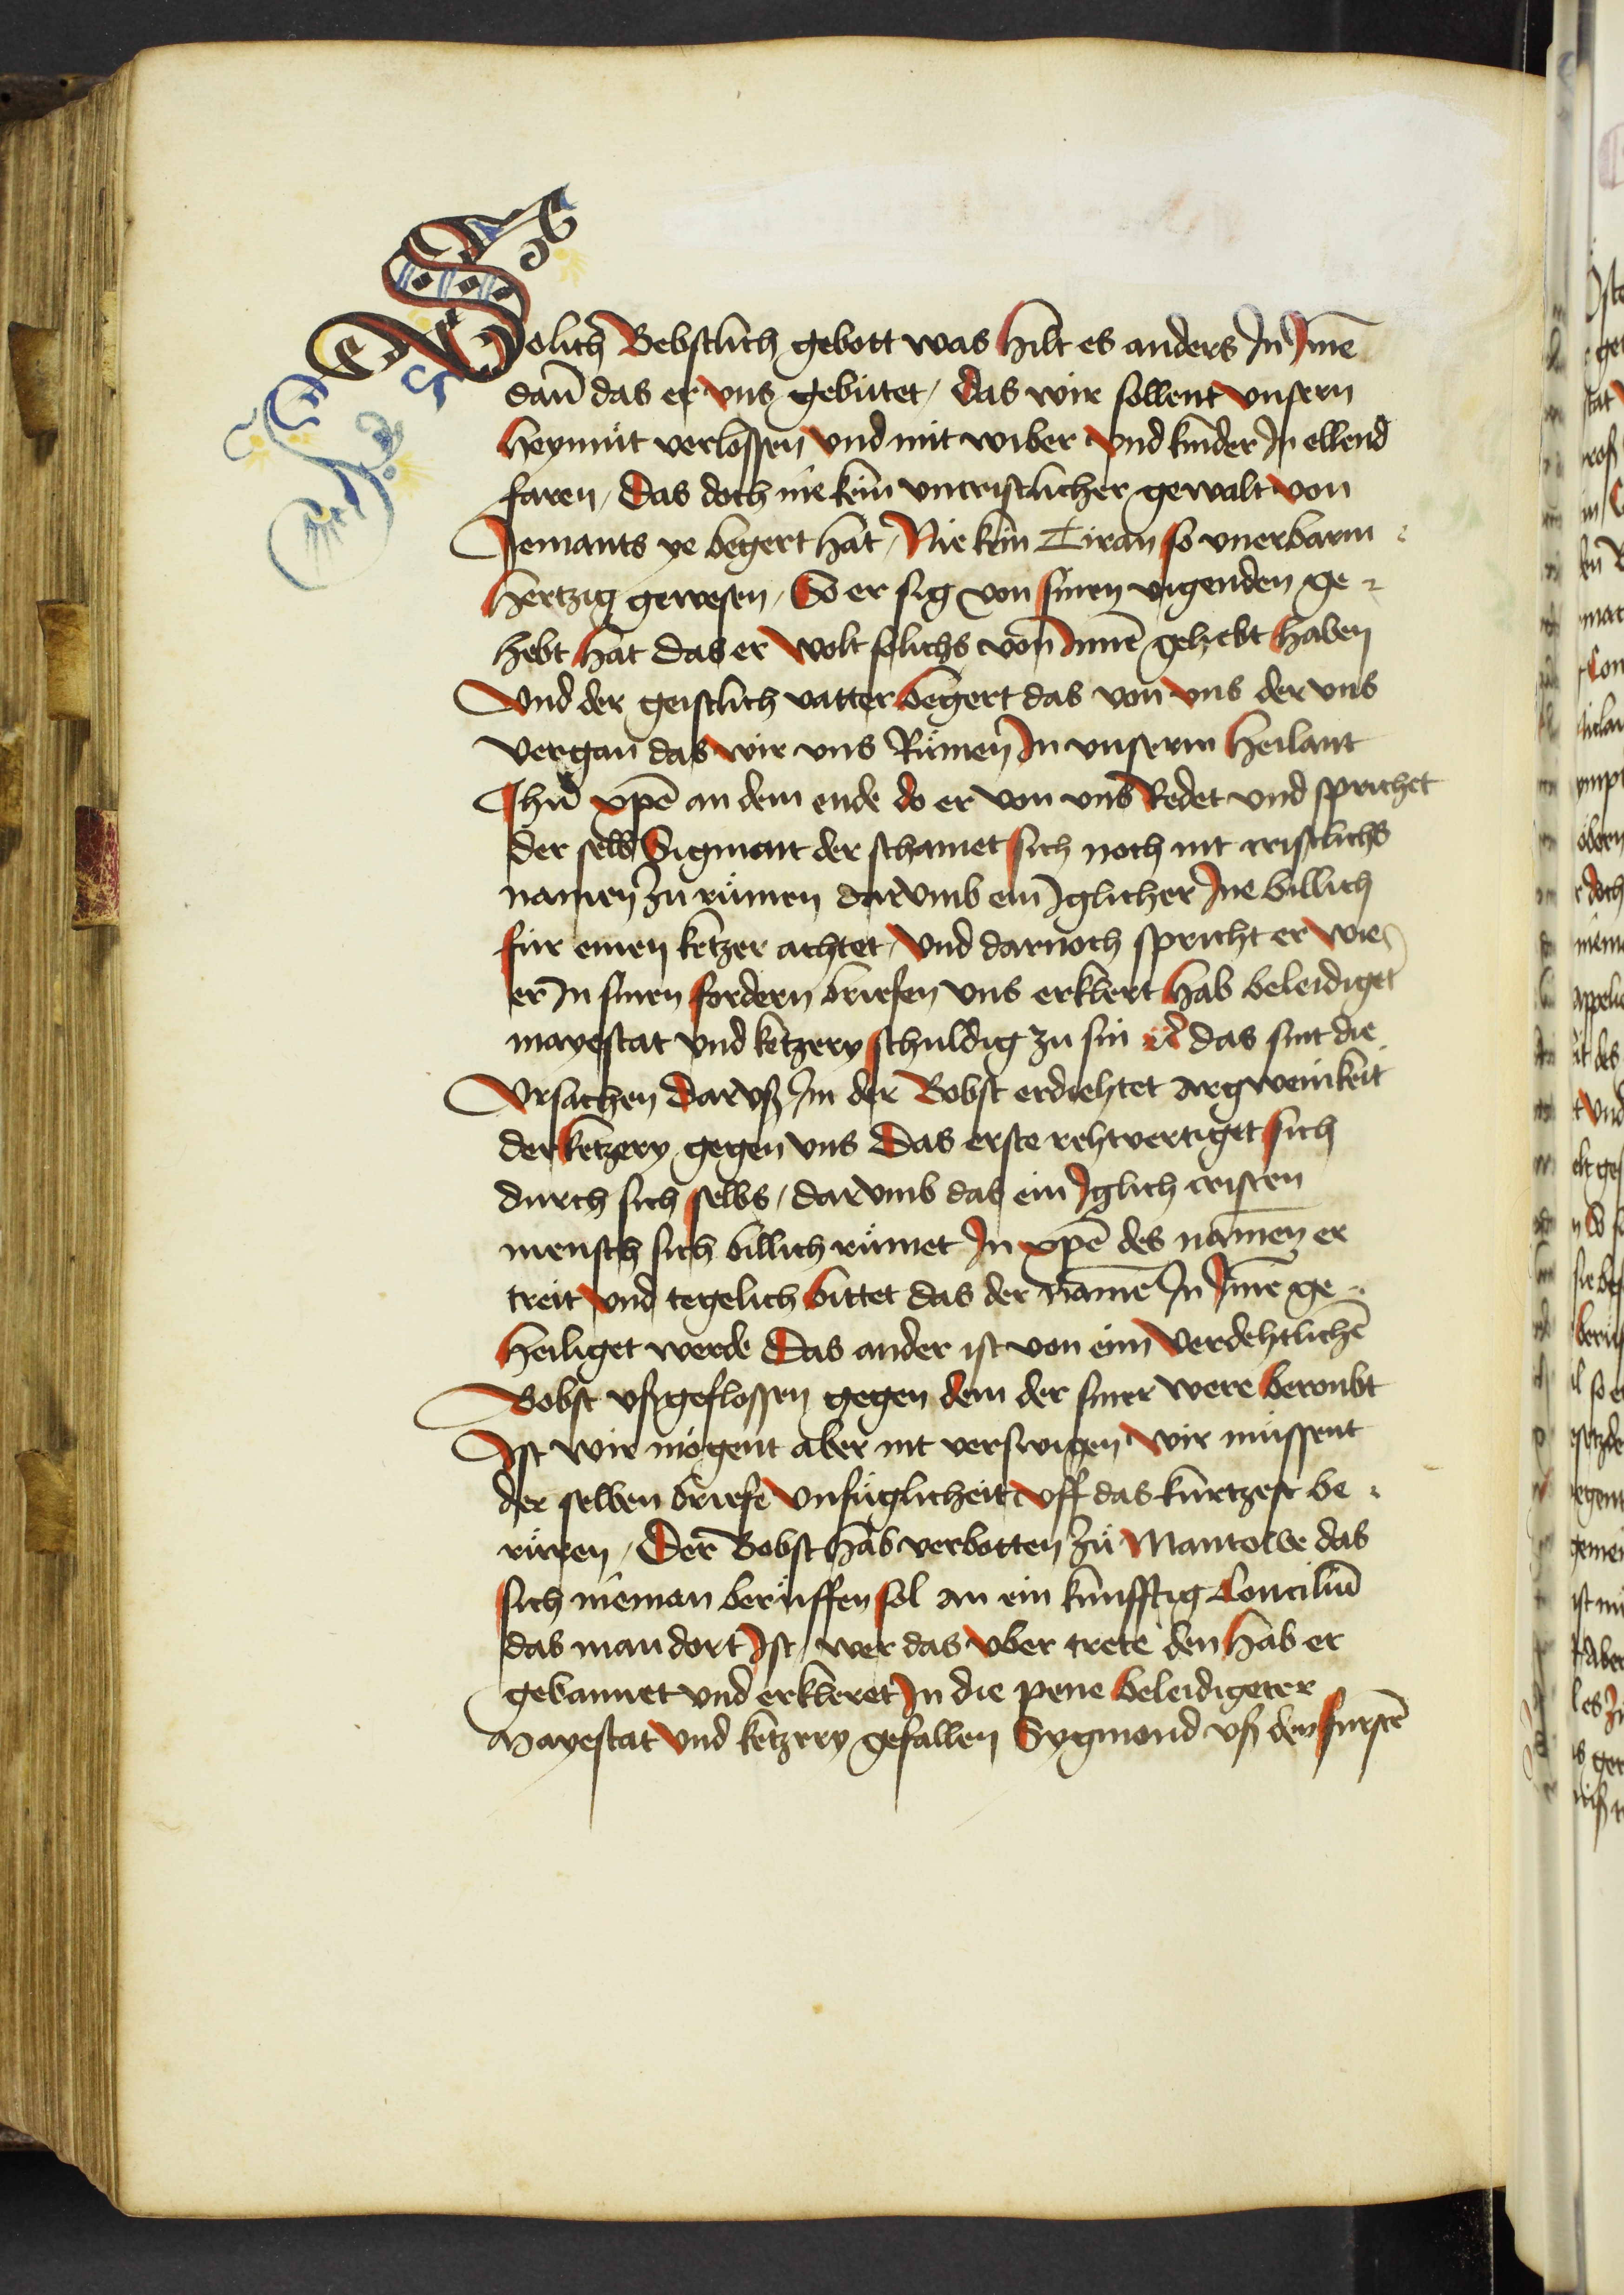 Solich Bebstlich gebott was hilt es anders Jn Jme͂
dan͂ das er vns gebu̍tet / das wir sollent vnsern
heymu̍t verlossen vnd mit wiber vnd kinder Jn ellend
faren / das doch nie kein vncristlicher gewalt von
Jemants ye begert hat / Nie kein Tiran so vnerbarm
hertzig gewesen / So er sig von sinen vigenden ge
hebt hat das er wolt solichs von Jnne͂ gehebt haben
Vnd der geistlich vatter begert das von vns der vns
vergan das wir vns Ru̍men Jn vnserm heilant
Jhu͂ xp̄e an dem ende do er von vns Redet vnd sprichet
der selb Sigmont der schamet sich noch nit cristlichs
namen zu̍ ru̍men darvmb ein Jglicher Jne billich
fu̍r einen ketzer achtet / Vnd darnoch spricht er wie
er Jn sinen fordern briefen vns erklert hab beleidiget
mayestat vnd ketzery schuldig zu sin vn̄ das sint die
Vrsachen darvß Jm der Bobst erdichtet argwenikeit
der ketzery gegen vns Das erste rehtvertiget sich
durch sich selbs / darvmb das ein Jglich cristen
mensch sich billich ru̍met Jn xp̄e des namen er
treit vnd tegelich bittet das der name͂ Jn Jme͂ ge
heiliget werde Das ander ist von eim verdehtliche͂
Bobst vßgeflossen gegen dem der siner were beroubt
Jst wir mo̍gent aber nit verswigen wir mu̍ssent
der selben briefe vnfu̍glicheit vff das ku̍rtzest be
ru̍ren / Der Bobst hab verbotten zu̍ Mantowe das
sich nieman beru̍ffen sol an ein ku̍nfftig Conciliu͂
das man dort Jst / wer das vber trete den hab er
gebannet vnd erkleret Jn die pene beleidigeter
Mayestat vnd ketzery gefallen Sygmond vß den fu̍rste͂